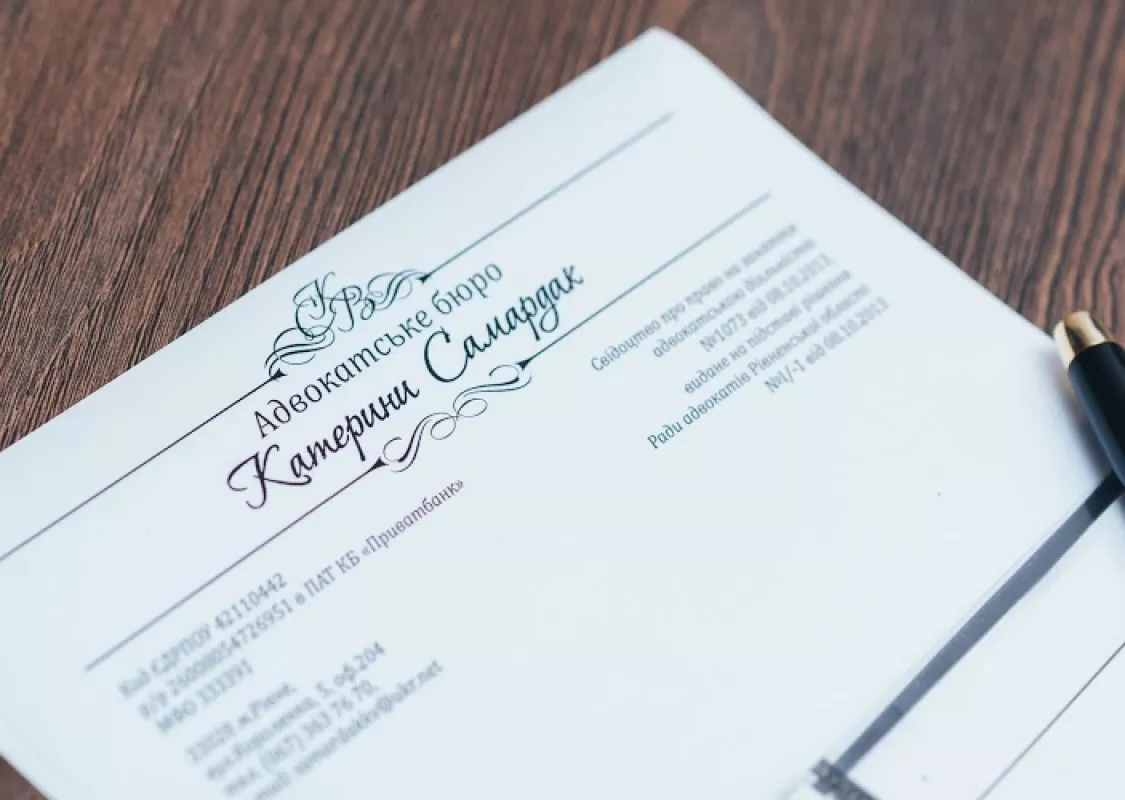 Адвокатське бюро
Катерини Самардак
Свідоцтво про право на заняття
адвокатською діяльністю
№1073 від 08.10.2013,
видане на підставі рішення
Ради адвокатів Рівненської області
№1/-1 від 08.10.2013
Код ЄДРПОУ 42110442
р/р 26008054726951 в ПАТ КБ «Приватбанк»
МФО 333391
м.Рівне,
вул.Короленка, 5, оф.204
тел. (067) 363 76 70,